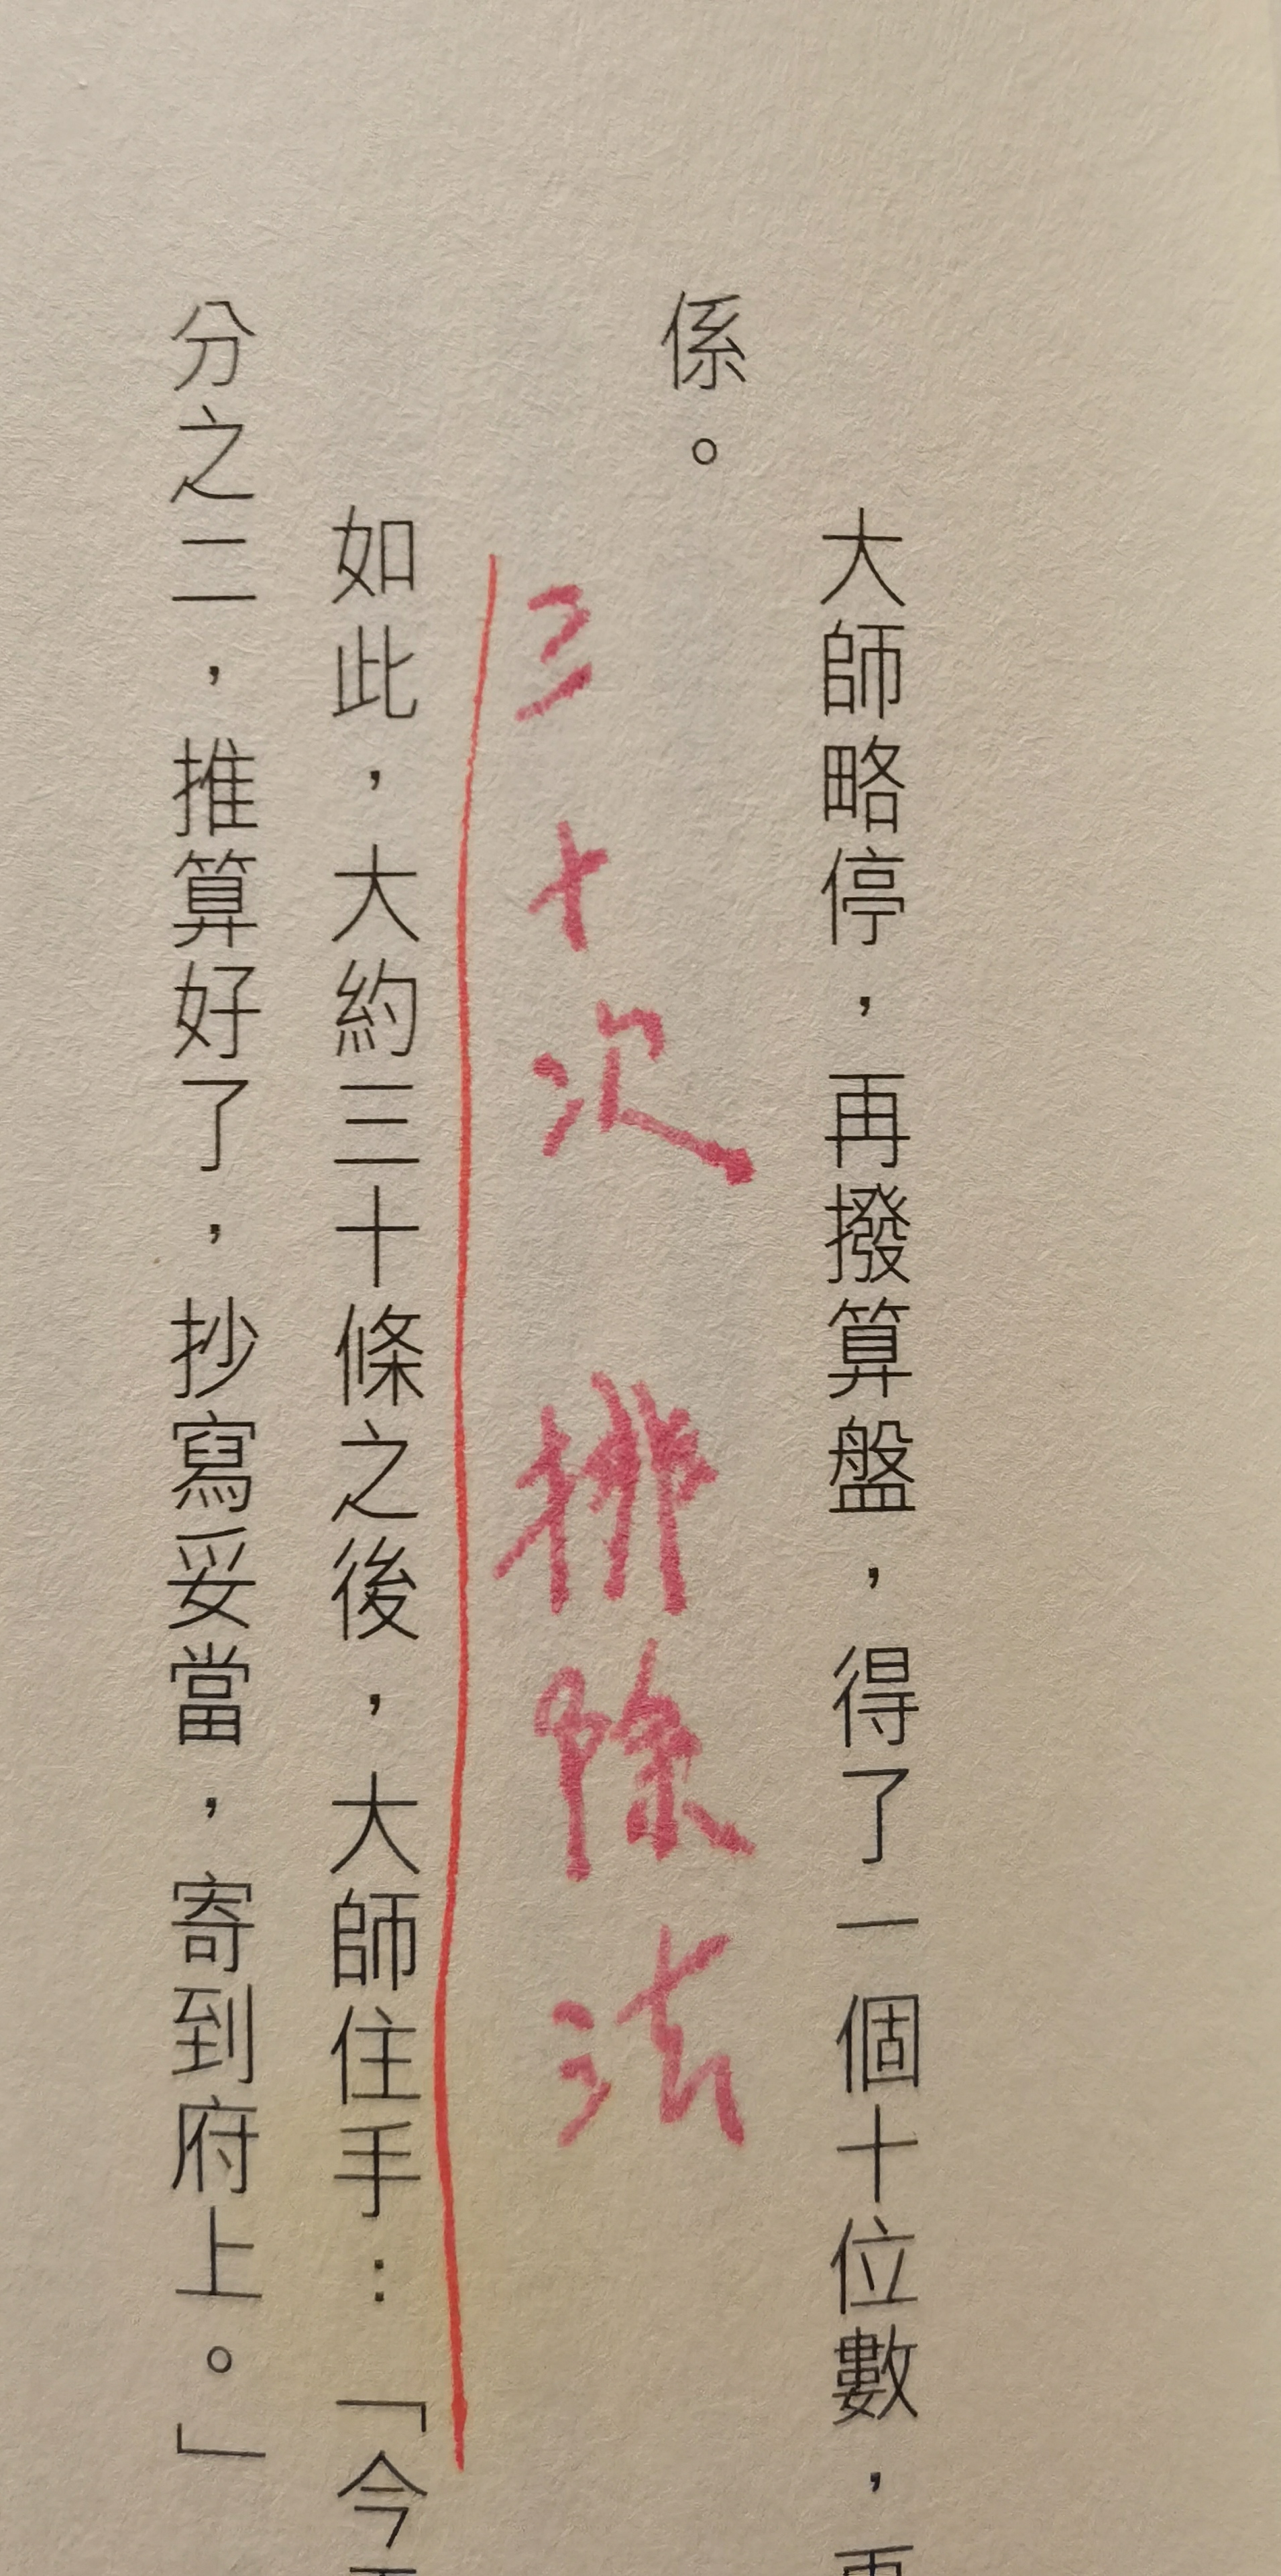 大師略停，再撥算盤，得了一個十位數，再
係。
三十次 排除法
如此，大約三十條之後，大師住手：「今
分之二，推算好了，抄寫妥當，寄到府上。」